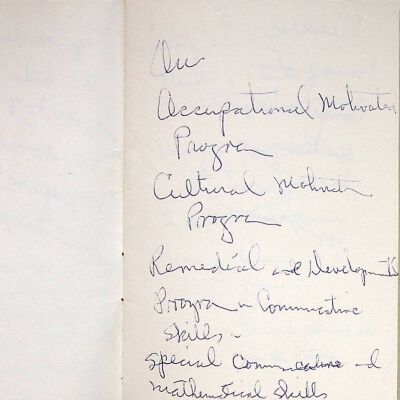 Occupational Motivation
Program
Cultural Motivation
Program
Remedial and Developmental
Program in Communicative
Skills -
Special Communicative and
Mathematical Skills